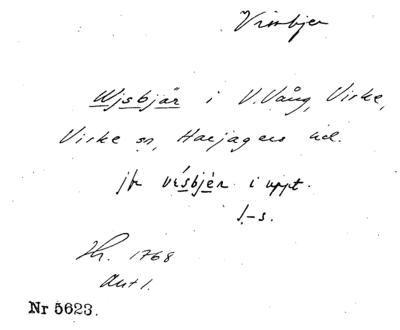 Vissbjer
Wjsbjär i V.Vång, Virke,
Virke sn, Harjagers hd.
jfr vísbjér i uppt.
l-s.
Hh. 1768
Akt 1.
Nr 5623.